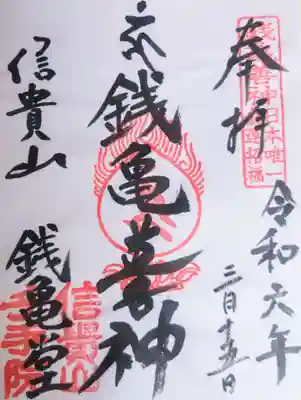 奉拝
銭亀善神日本唯一
令和六年
三月十五日
銭亀善神
信貴山
銭亀堂
信貴山
千手院